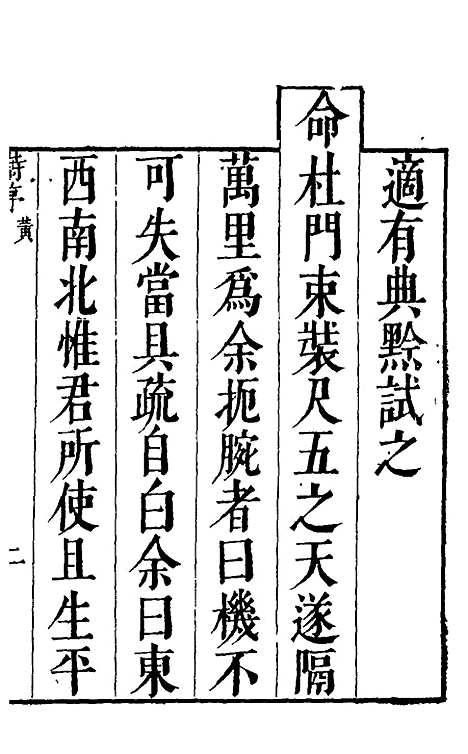 適有典黔試之
命杜門束裝尺五之天遂隔
萬里爲余扼腕者曰機不
可失當具疏自白余曰東
西南北惟君所使且生平
黃
二